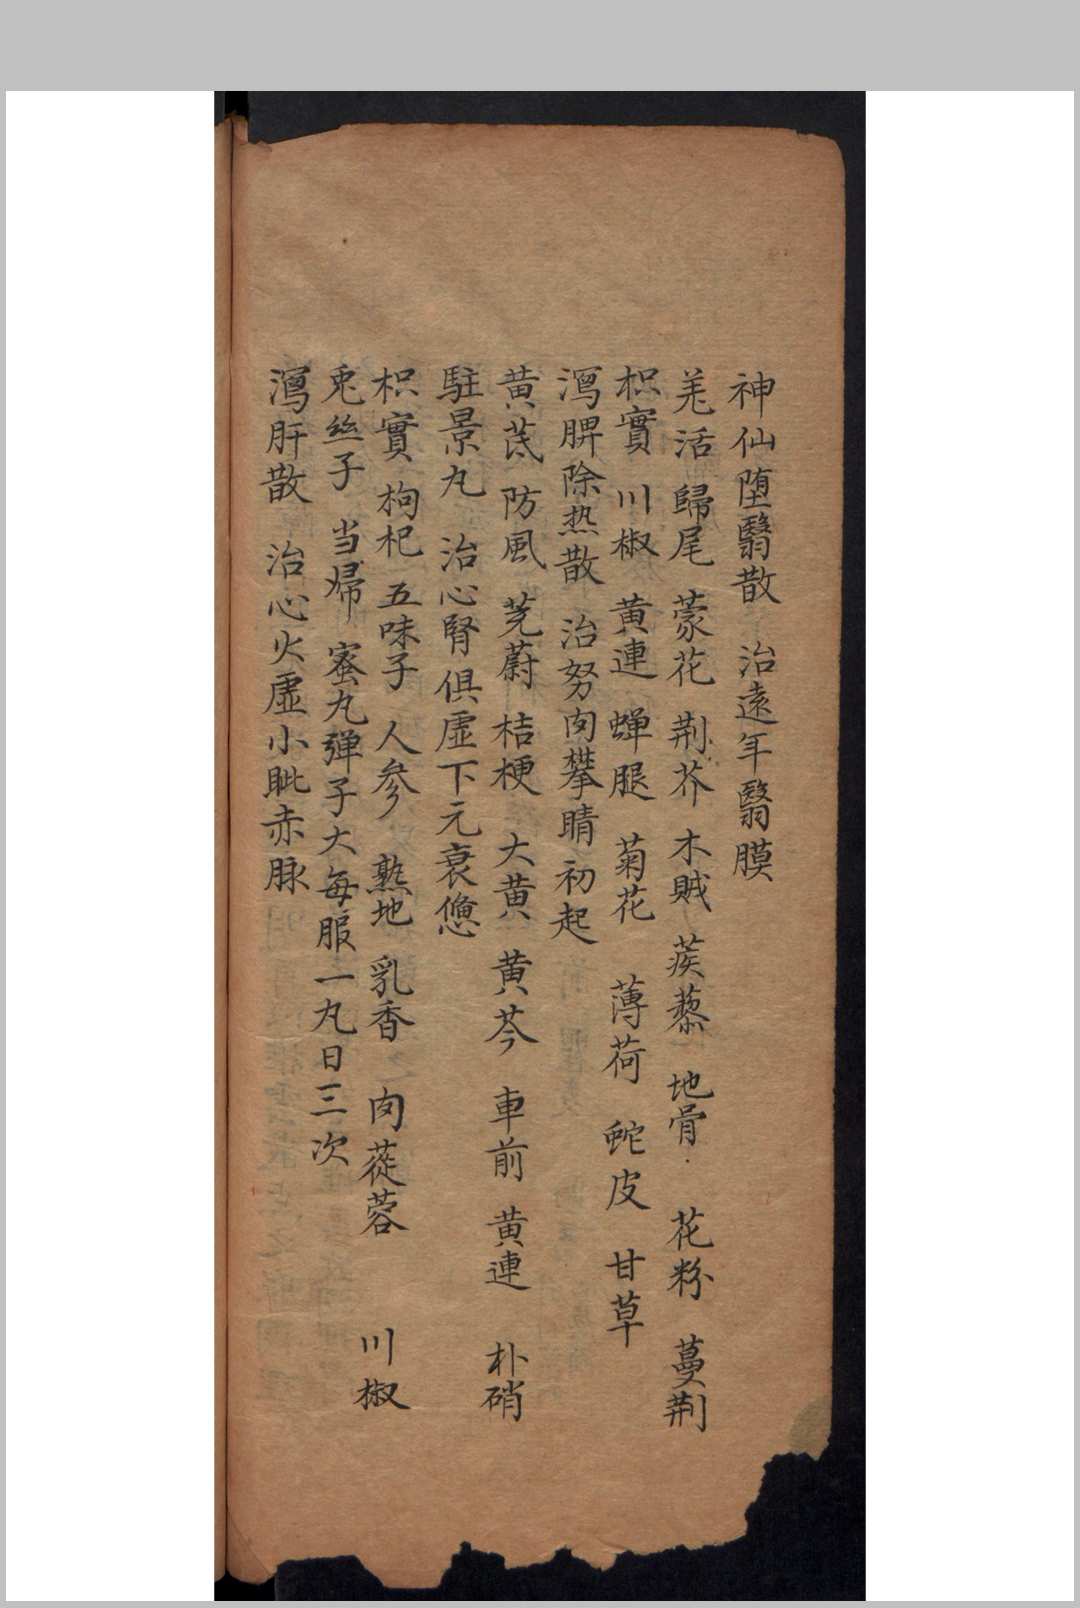 神仙堕翳散 治遠年翳膜
羌活 歸尾 蒙花 荆芥 木賊 蒺藜 地骨 花粉 蔓荆
枳實 川椒 黄連 蝉腿 菊花 薄荷 蛇皮 甘草
瀉脾除热散 治努肉攀睛初起
黄芪 防風 茺蔚 桔梗 大黄 黄芩 車前 黄連 朴硝
駐景丸 治心腎俱虚下元衰憊
枳實 枸杞 五味子 人參 熟地 乳香 肉蓯蓉 川椒
兎丝子 当歸 蜜丸弹子大每服一丸日三次
瀉肝散 治心火虚小眦赤脉